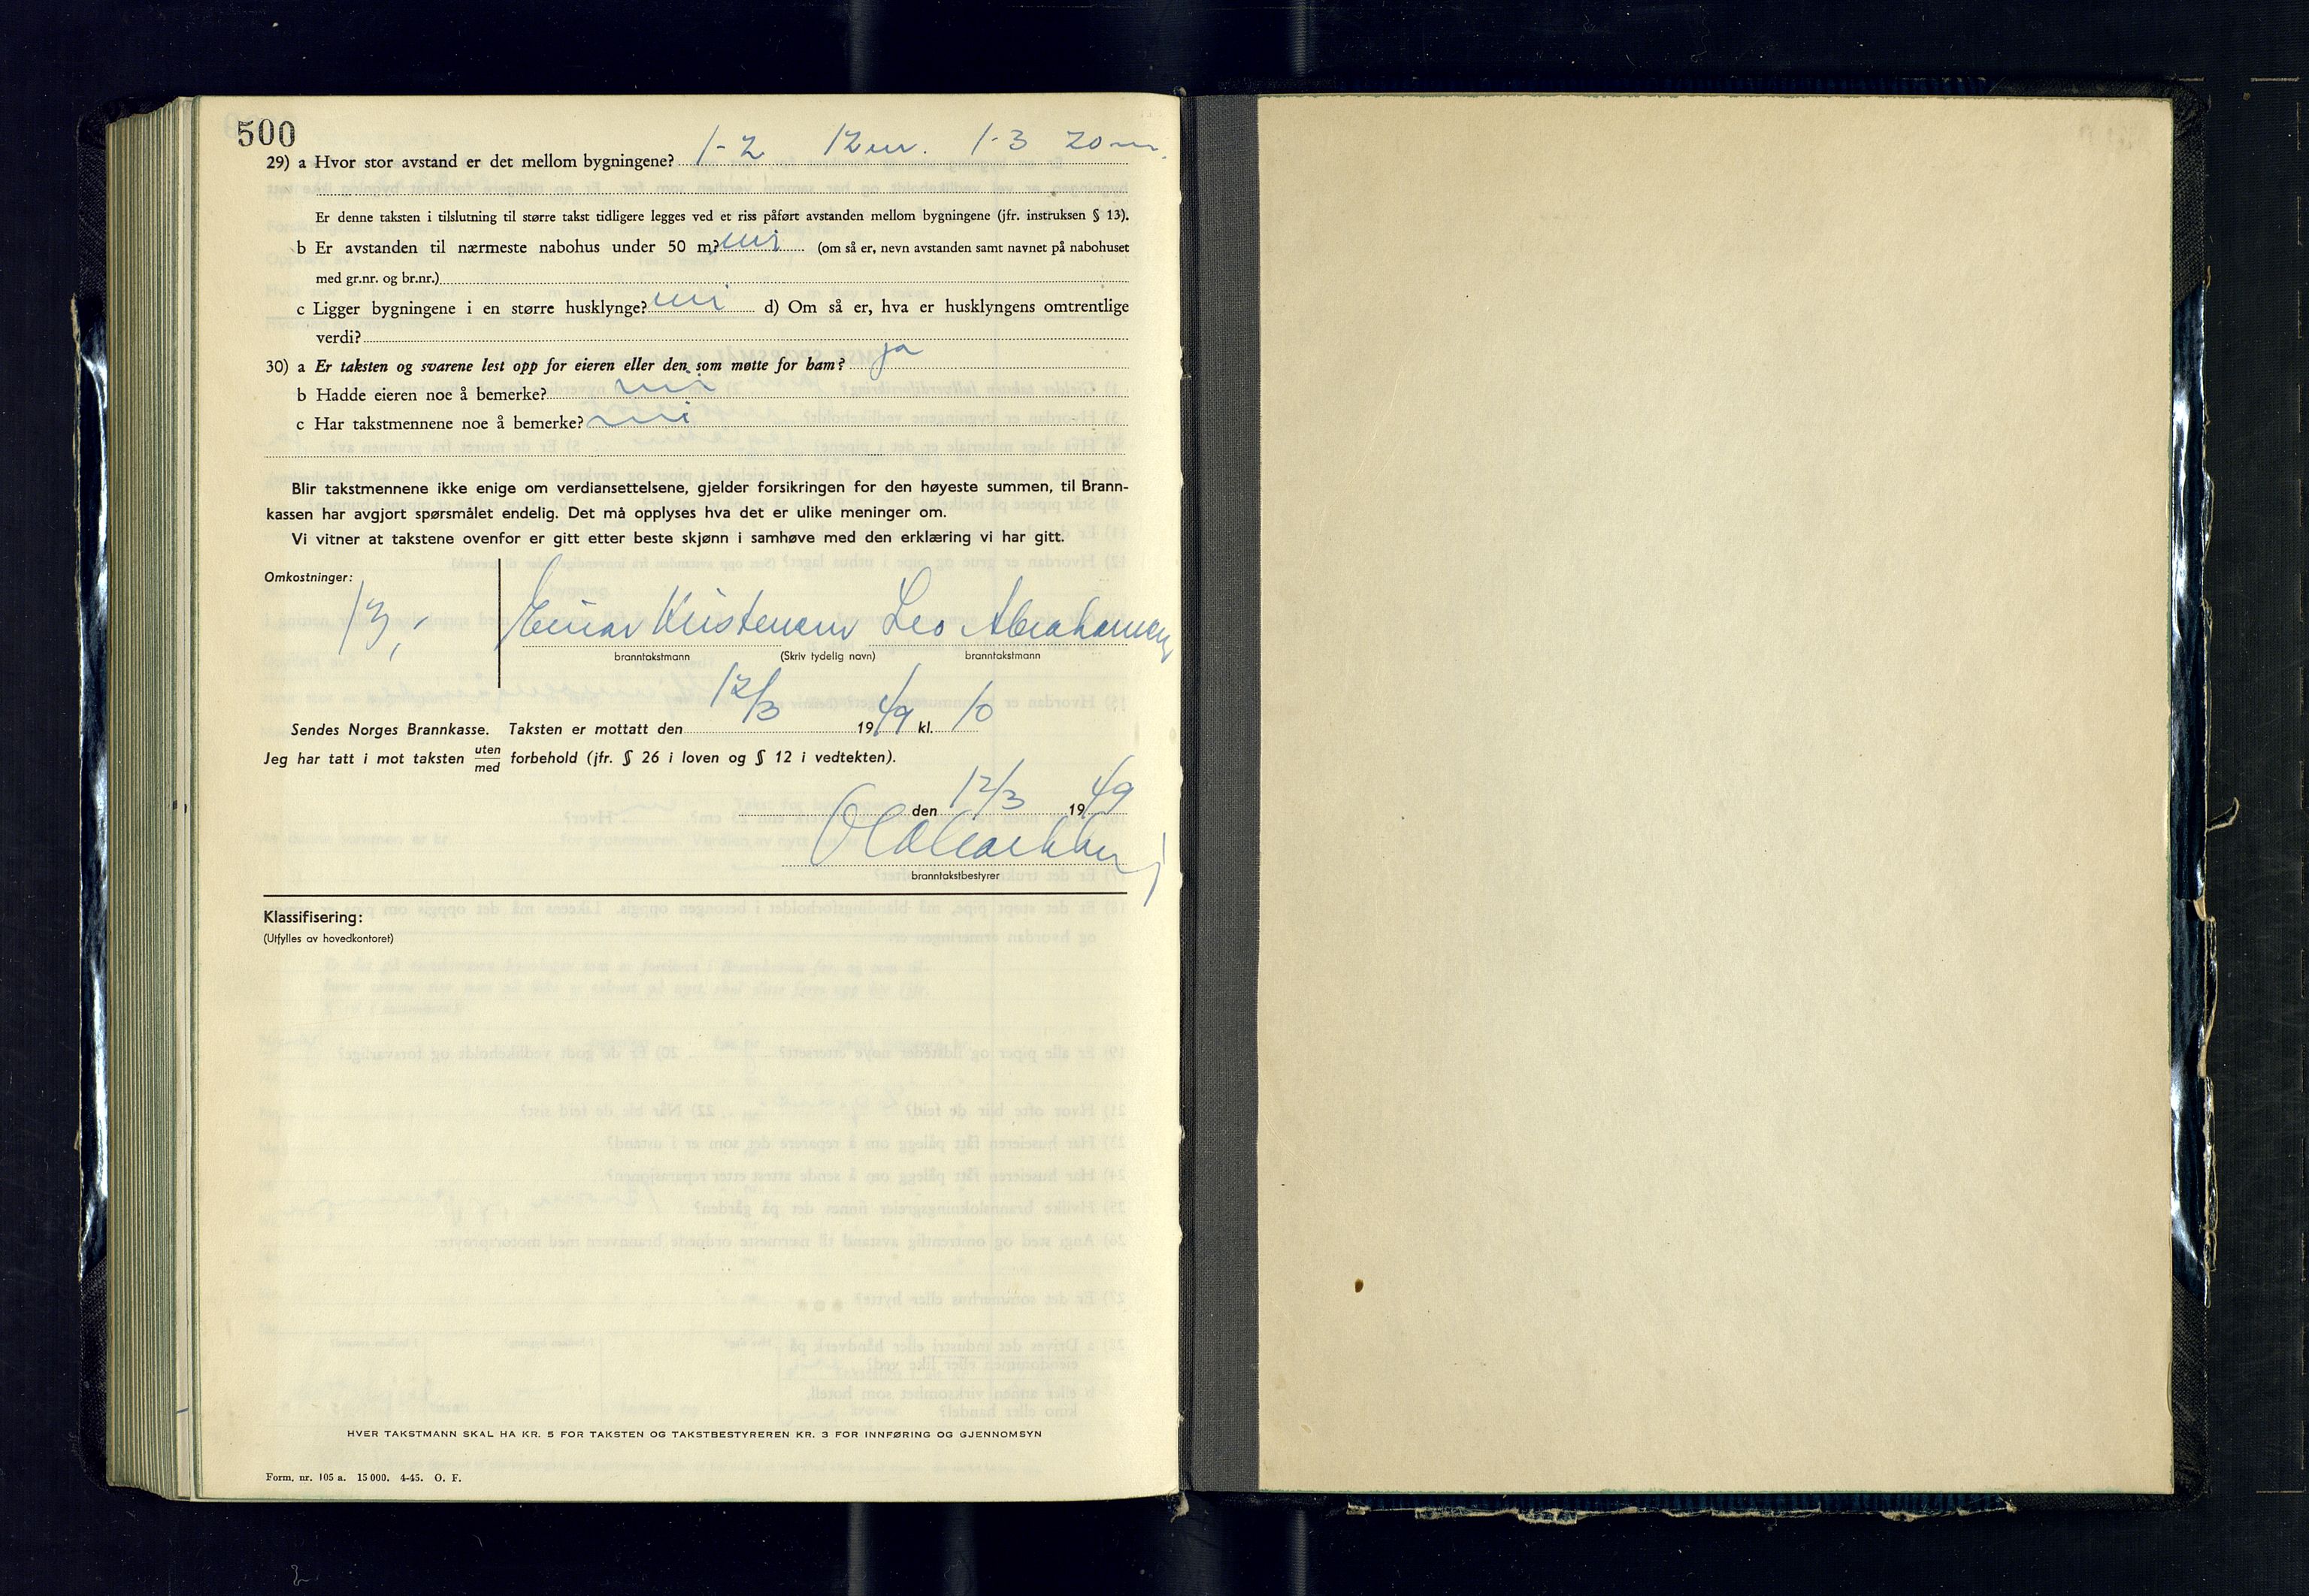 500
29) a Hvor stor avstand er det mellom bygningene? 1-2 12 m. 1-3 20 m.
Er denne taksten i tilslutning til større takst tidligere legges ved et riss påført avstanden mellom bygningene (jfr. instruksen § 13).
b Er avstanden til nærmeste nabohus under 50 m? nei (om så er, nevn avstanden samt navnet på nabohuset
med gr.nr. og br.nr.)
c Ligger bygningene i en større husklynge? nei d) Om så er, hva er husklyngens omtrentlige
verdi?
30) a Er taksten og svarene lest opp for eieren eller den som møtte for ham? ja
b Hadde eieren noe å bemerke? nei
c Har takstmennene noe å bemerke? nei
Blir takstmennene ikke enige om verdiansettelsene, gjelder forsikringen for den høyeste summen, til Brann-
kassen har avgjort spørsmålet endelig. Det må opplyses hva det er ulike meninger om.
Vi vitner at takstene ovenfor er gitt etter beste skjønn i samhøve med den erklæring vi har gitt.
Omkostninger:
13,- Einar Kristensen Leo Abrahamsen
branntakstmann (Skriv tydelig navn) branntakstmann
Sendes Norges Brannkasse. Taksten er mottatt den 12/3 1949 kl. 10
Jeg har tatt i mot taksten uten/med forbehold (jfr. § 26 i loven og § 12 i vedtekten).
den 12/3 1949
branntakstbestyrer
Klassifisering:
(Utfylles av hovedkontoret)
HVER TAKSTMANN SKAL HA KR. 5 FOR TAKSTEN OG TAKSTBESTYREREN KR. 3 FOR INNFØRING OG GJENNOMSYN
Form. nr. 105 a. 15 000. 4-45. O. F.